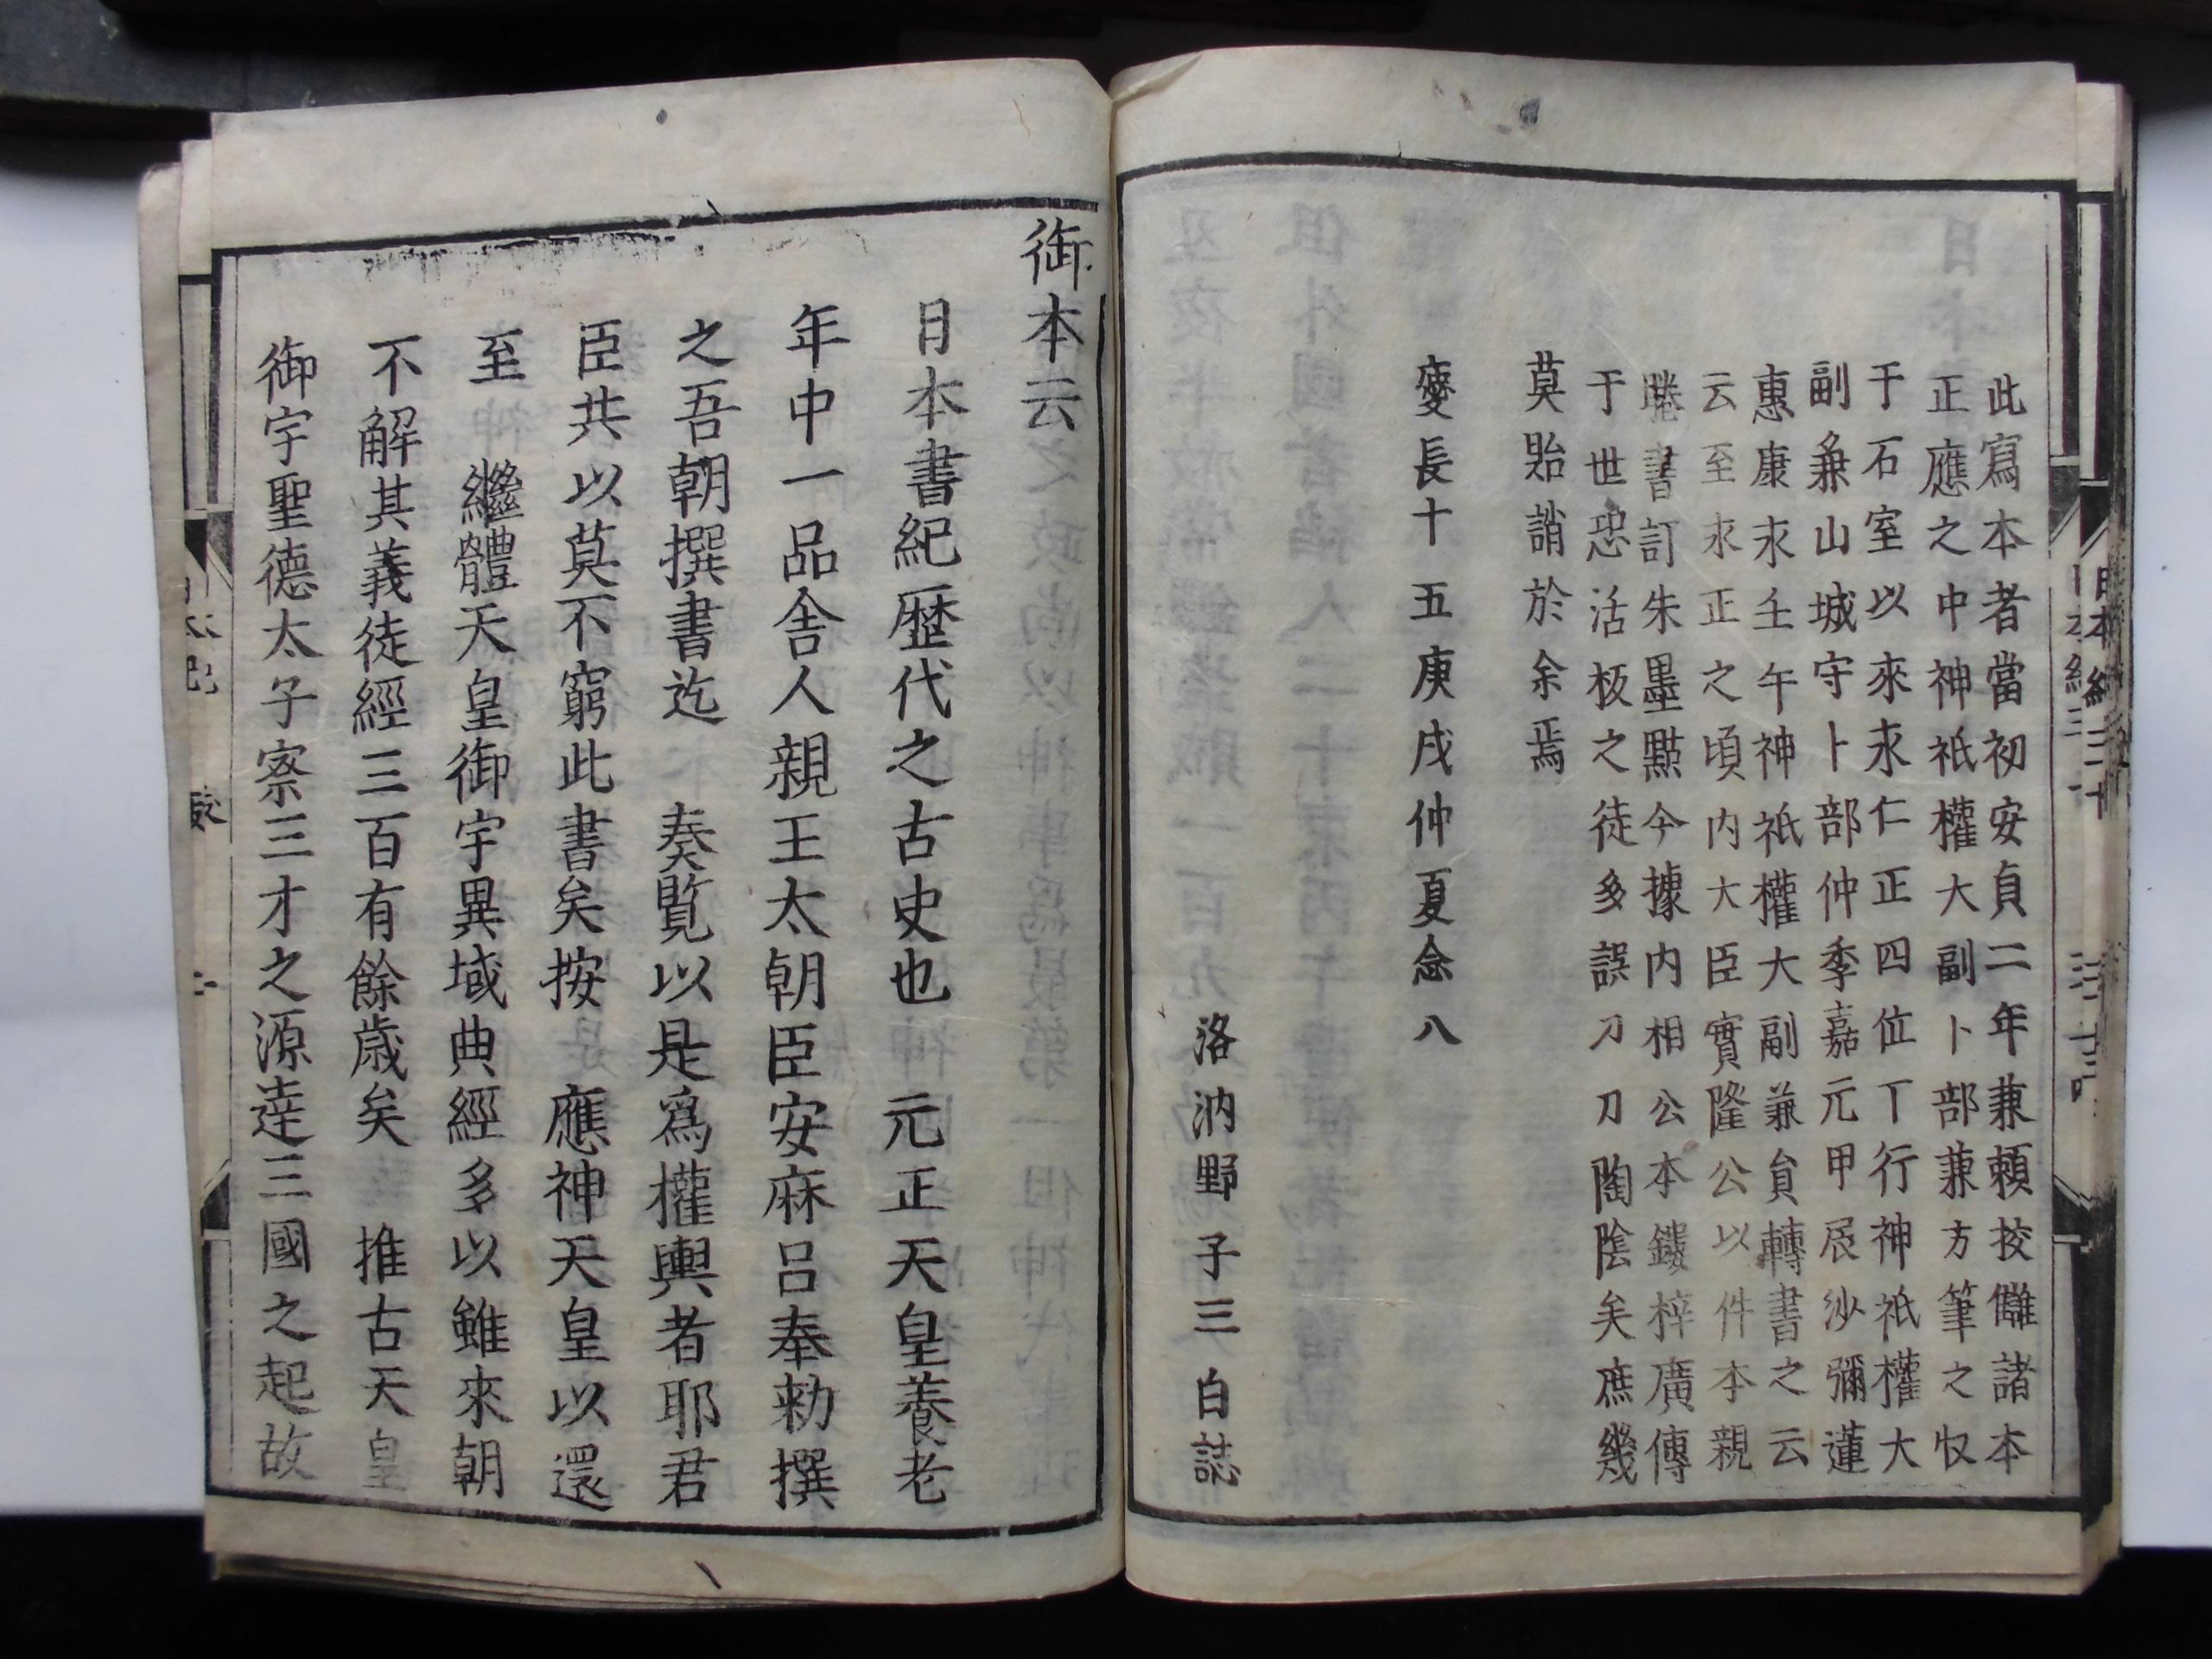 此寫本者當初安貞二年兼頼挍讎諸本
正應之中神祇權大副卜部兼方筆之収
于石室以來永仁正四位丁行神祇權大
副兼山城守卜部仲季嘉元甲辰沙彌蓮
惠康永壬午神祇權大副兼員轉書之云
云至永正之頃内大臣實隆公以件本親
騰書訂朱墨點今據内相公本鏤梓廣傳
于世恐活板之徒多誤刀刁陶陰矣庶幾
莫貽誚於余焉
慶長十五庚戌仲夏念八
洛汭野子三白誌
御本云
日本書紀歴代之古史也 元正天皇養老
年中一品舎人親王太朝臣安麻呂奉勅撰
之吾朝撰書迄 奏覧以是爲權輿者耶君
臣共以莫不窮此書矣按 應神天皇以還
至 繼體天皇御宇異域典經多以雖來朝
不解其義徒經三百有餘歳矣 推古天皇
御宇聖德太子察三才之源達三國之起故